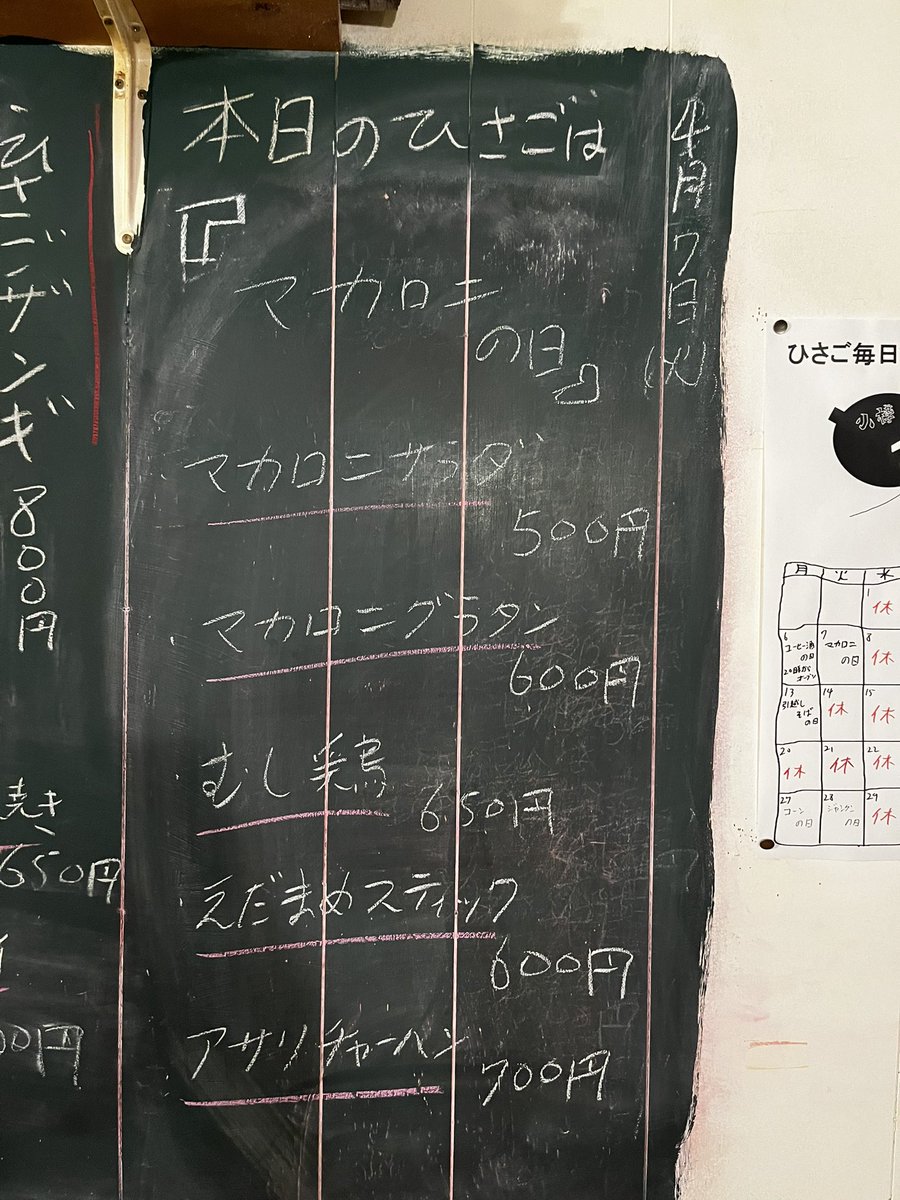 本日のひさごは
『
マカロニ
の日
』
4月7日(火)
マカロニサラダ
500円
マカロニグラタン
600円
むし鶏
650円
えだまめスティック
600円
アサリチャーハン
700円
ひさごザンギ 800円
焼き
650円
00円
ひさご毎日
小樽
月 火 水
1 休
6 コーヒー酒の日 20時からオープン
7 マカロニの日
8 休
13 引越しそばの日
14 休
15 休
20 休
21 休
22 休
27 コーンの日
28 の日
29 休